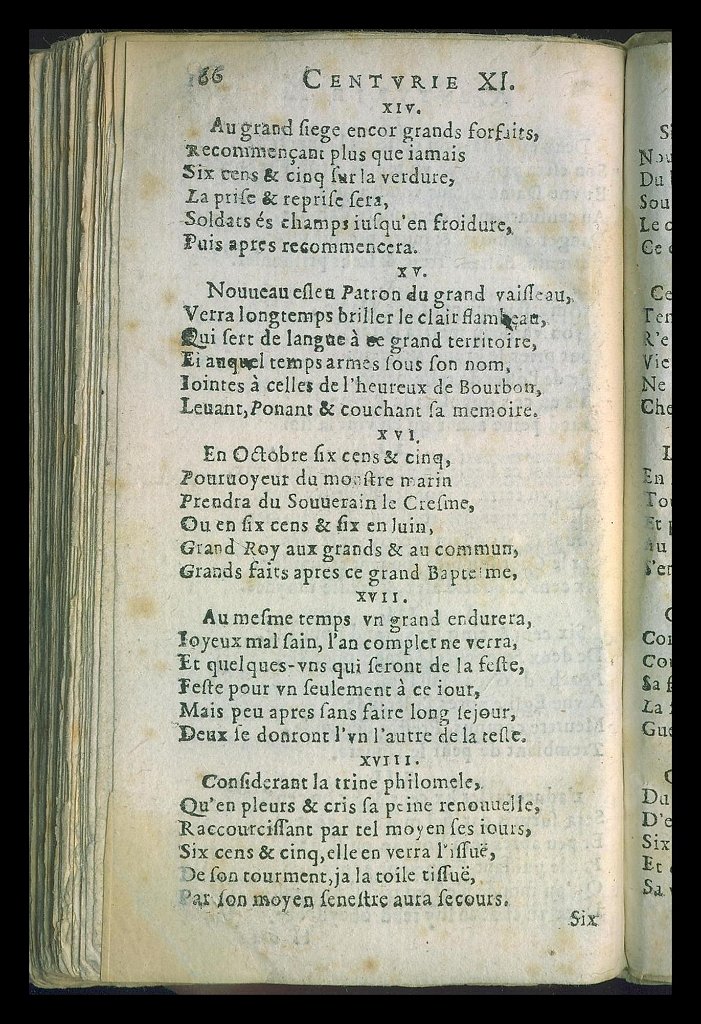 86 CENTVRIE XI.
XIV.
Au grand ſiege encor grands forfaits,
Recommençant plus que iamais
Six cens & cinq ſur la verdure,
La priſe & repriſe ſera,
Soldats és champs iuſqu'en froidure,
Puis apres recommencera.
XV.
Nouueau eſleu Patron du grand vaiſſeau,
Verra longtemps briller le clair flambeau,
Qui ſert de langue à ce grand territoire,
Et auquel temps armes ſous ſon nom,
Iointes à celles de l'heureux de Bourbon,
Leuant, Ponant & couchant ſa memoire.
XVI.
En Octobre ſix cens & cinq,
Pouruoyeur du monſtre marin
Prendra du Souuerain le Creſme,
Ou en ſix cens & ſix en Iuin,
Grand Roy aux grands & au commun,
Grands faits apres ce grand Bapteſme,
XVII.
Au meſme temps vn grand endurera,
Ioyeux mal ſain, l'an complet ne verra,
Et quelques-vns qui ſeront de la feſte,
Feſte pour vn ſeulement à ce iour,
Mais peu apres ſans faire long ſejour,
Deux ſe donront l'vn l'autre de la teſte.
XVIII.
Conſiderant la trine philomele,
Qu'en pleurs & cris ſa peine renouuelle,
Raccourciſſant par tel moyen ſes iours,
Six cens & cinq, elle en verra l'iſſuë,
De ſon tourment, ja la toile tiſſuë,
Par ſon moyen ſeneſtre aura ſecours.
Six
Nou
Du
Sou
Le
Ce
Ce
R'e
Vic
Ne
Che
En
Tou
Et
Au
S'en
Con
Sa
La
Gue
Du
D'e
Six
Et
Sa